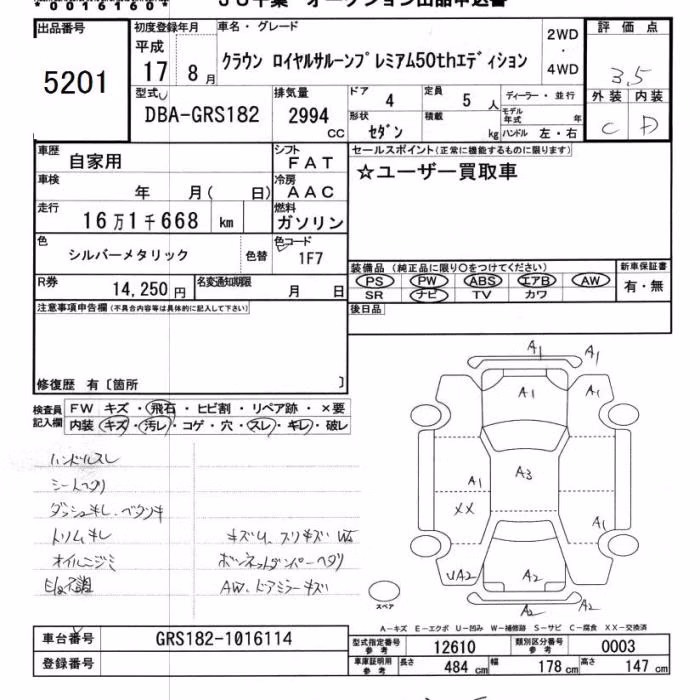 *00161604*
JU千葉 オークション出品申込書
出品番号 5201
初度登録年月 平成 17年 8月
車名・グレード クラウン ロイヤルサルーンプレミアム50thエディション
2WD ・ 4WD
評価点 3.5
外装 C 内装 D
型式 DBA-GRS182
排気量 2994 CC
ドア 4 定員 5 人 ディーラー・並行
形状 セダン 積載 kg モデル年式 年
ハンドル 左・右
車歴 自家用
シフト FAT
セールスポイント(正常に機能するものに限ります)
☆ユーザー買取車
車検 年 月( 日)
冷房 AAC
走行 16万1千668 km
燃料 ガソリン
色 シルバーメタリック 色替
色コード 1F7
R券 14,250円
名変通知期限 月 日
装備品(純正品に限り○をつけてください)
PS PW ABS エアB AW
SR ナビ TV カワ
新車保証書 有・無
後日品
注意事項申告欄(不具合内容等は具体的に記入して下さい)
修復歴 有〔箇所 〕
検査員記入欄
FW キズ・飛石・ヒビ割・リペア跡・×要
内装 キズ・汚レ・コゲ・穴・スレ・キレ・破レ
ハンドルスレ
シートヘタリ
ダッシュキレ・ベタツキ
トリムキレ
キズU、スリキズ
オイルニジミ
ボンネットダンパーヘタリ
AW、ドアミラーキズ
A1 A1
A1 A1
A3
A1
XX
A1
UA2 A2
A2 A2
スペア
A-キズ E-エクボ U-凹み W-補修跡 S-サビ C-腐食 XX-交換済
車台番号 GRS182-1016114
登録番号
型式指定番号 参考 12610 類別区分番号 参考 0003
車庫証明用 参考 長さ 484 cm 幅 178 cm 高さ 147 cm